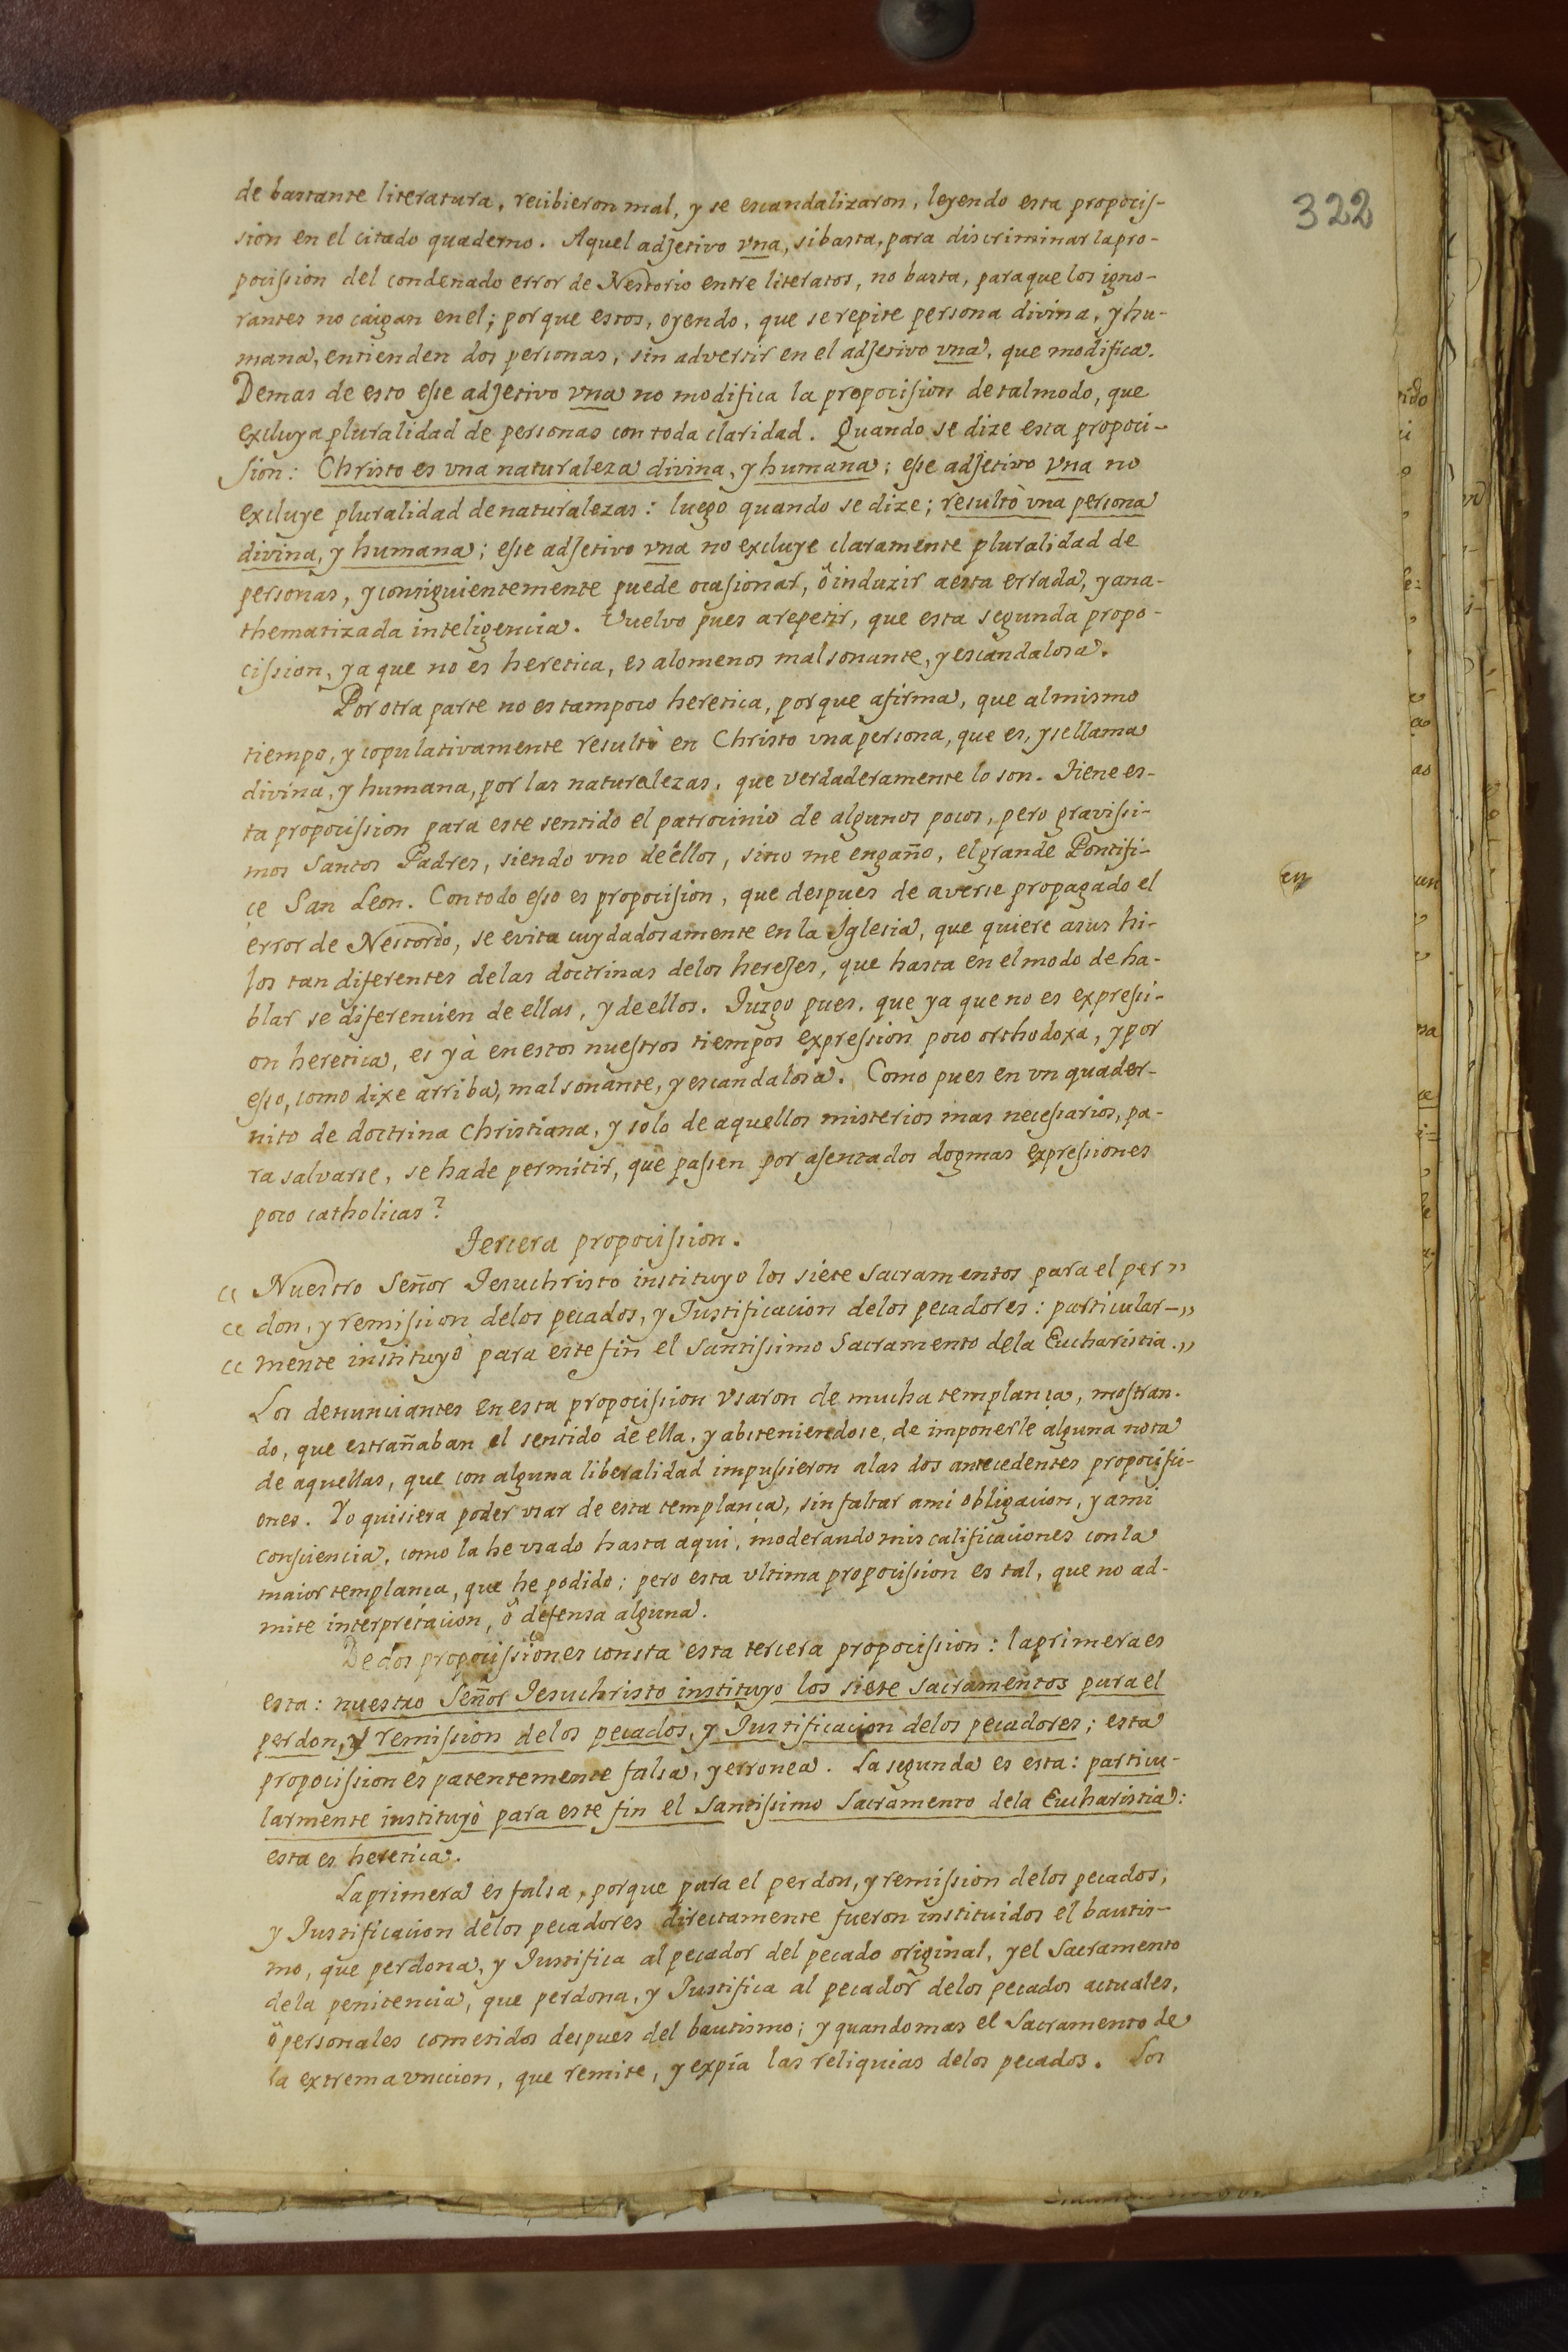 322
de bastante literatura, recibieron mal, y se escandalizaron, leyendo esta propocis-
sion en el citado quaderno. Aquel adjetivo vna, si basta, para discriminar la pro-
pocission del condenado error de Nestorio entre literatos, no basta, para que los igno-
rantes no caigan en el; porque estos, oyendo, que se repite persona divina, y hu-
mana, entienden dos personas, sin advertir en el adjetivo vna, que modifica.
Demas de esto esse adjetivo vna no modifica la propocision de tal modo, que
excluya pluralidad de personas con toda claridad. Quando se dize esta propoci-
sion: Christo es vna naturaleza divina, y humana; esse adjetivo vna no
excluye pluralidad de naturalezas: luego quando se dize; resultò vna persona
divina, y humana; esse adjetivo vna no excluye claramente pluralidad de
personas, y consiguientemente puede ocasionar, ô induzir a esta errada, y ana-
thematizada inteligencia. Vuelvo pues a repetir, que esta segunda propo-
cission, ya que no es heretica, es alomenos mal sonante, y escandalosa.
Por otra parte no es tampoco heretica, porque afirma, que al mismo
tiempo, y copulativamente resultò en Christo vna persona, que es, y se llama
divina, y humana, por las naturalezas, que verdaderamente lo son. Tiene es-
ta propocission para este sentido el patrocinio de algunos pocos, pero gravissi-
mos Santos Padres, siendo vno de ellos, sino me engaño, el grande Pontifi-
ce San Leon. Con todo esso es propocision, que despues de averse propagado el
error de Nestorio, se evita cuydadosamente en la Iglesia, que quiere a sus hi-
jos tan diferentes de las doctrinas de los herejes, que hasta en el modo de ha-
blar se diferencien de ellas, y de ellos. Juzgo pues, que ya que no es expressi-
on heretica, es yà en estos nuestros tiempos expression poco orthodoxa, y por
esso, como dixe arriba, mal sonante, y escandalosa. Como pues en vn quader-
nito de doctrina Christiana, y solo de aquellos misterios mas necessarios, pa-
ra salvarse, se ha de permitir, que passen por asentados dogmas expressiones
poco catholicas?
Tercera propocission.
" Nuestro Señor Jesuchristo instituyo los siete sacramentos para el per "
" don, y remission de los pecados, y Justificacion de los pecadores: particular- "
" mente instituyò para este fin el santissimo Sacramento de la Eucharistia. "
Los denunciantes en esta propocission vsaron de mucha templança, mostran-
do, que estrañaban el sentido de ella, y absteniendose, de imponerle alguna nota
de aquellas, que con alguna liberalidad impussieron a las dos antecedentes propocissi-
ones. Yo quisiera poder vsar de esta templança, sin faltar a mi obligacion, y a mi
consciencia, como la he vsado hasta aqui, moderando mis calificaciones con la
maior templança, que he podido; pero esta vltima propocission es tal, que no ad-
mite interpretacion, ô defensa alguna.
De dos propocissiones consta esta tercera propocission: la primera es
esta: nuestro Señor Jesuchristo instituyo los siete sacramentos para el
perdon, y remission de los pecados, y Justificacion de los pecadores; esta
propocission es patentemente falsa, y erronea. La segunda es esta: particu-
larmente instituyò para este fin el santissimo sacramento de la Eucharistia:
esta es heretica.
La primera es falsa, porque para el perdon, y remission de los pecados,
y Justificacion de los pecadores directamente fueron instituidos el bautis-
mo, que perdona, y Justifica al pecador del pecado original, y el sacramento
de la penitencia, que perdona, y Justifica al pecador de los pecados actuales,
ô personales cometidos despues del bautismo; y quando mas el Sacramento de
la extrema vnccion, que remite, y expîa las reliquias de los pecados. Los